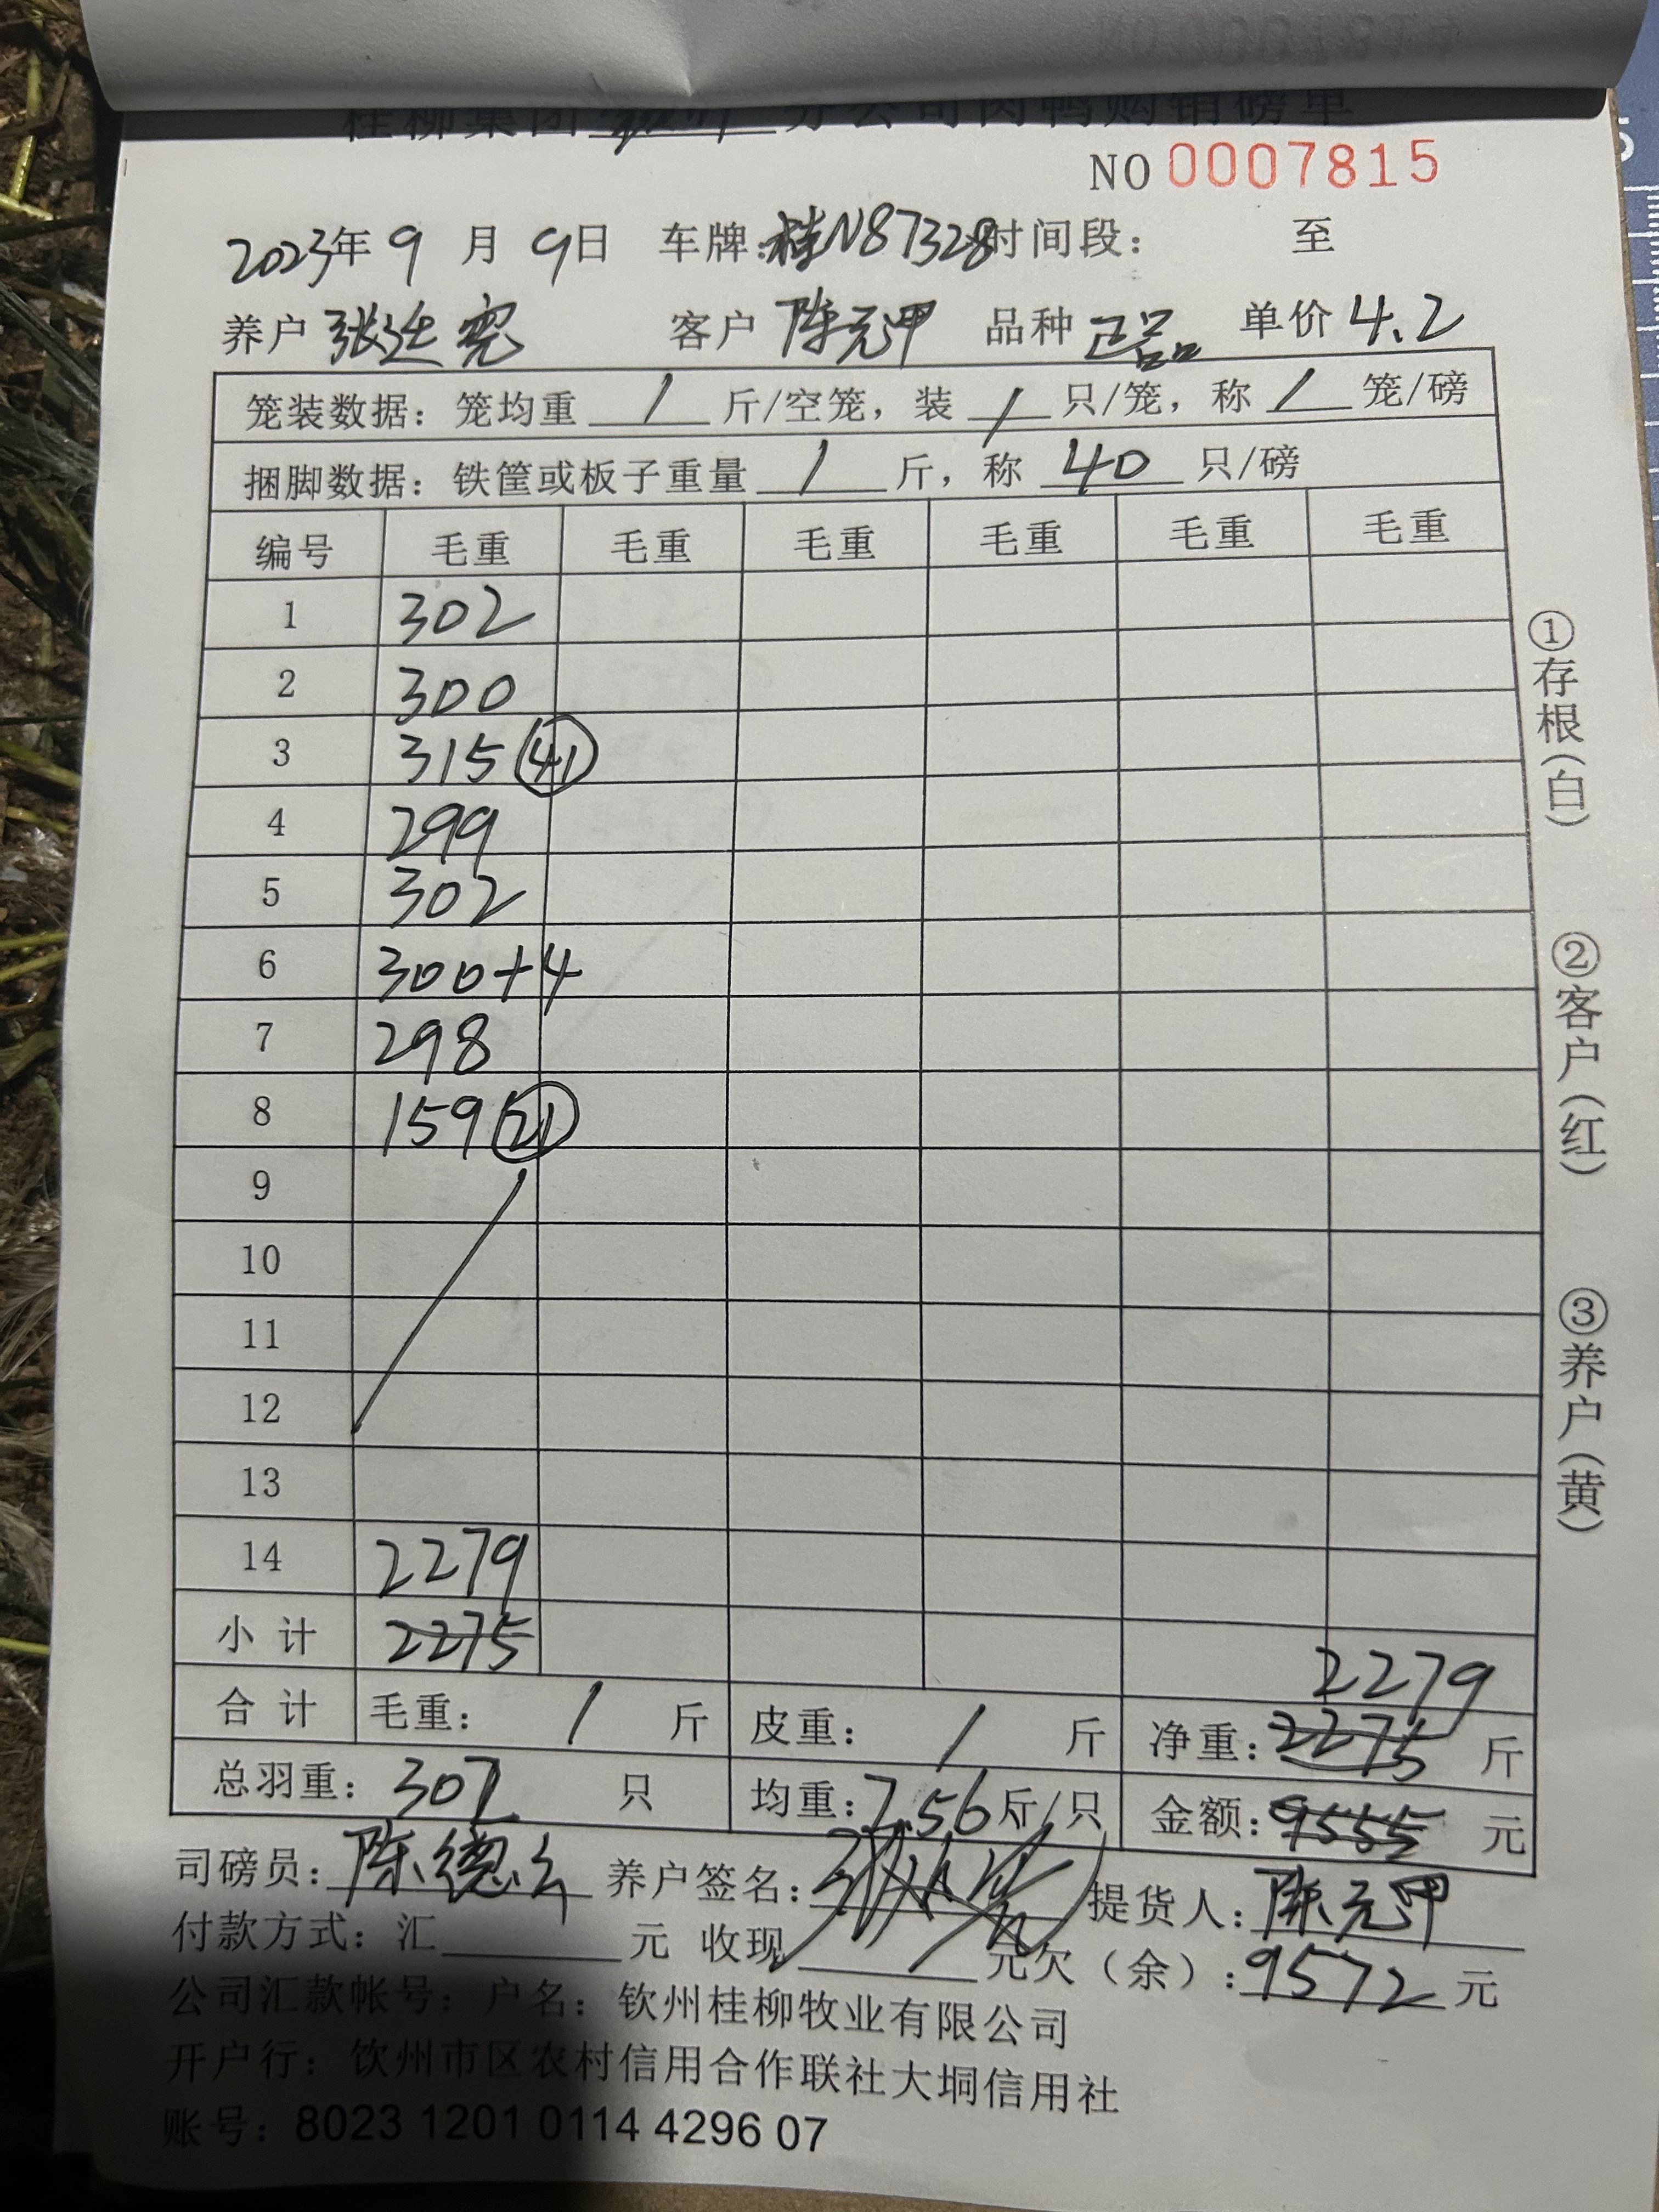 桂柳集团 分公司肉鸭购销磅单
NO 0007815
2023年 9 月 9日 车牌:桂N87328时间段: 至
养户 张廷宽 客户 陈元甲 品种 正品 单价 4.2
笼装数据: 笼均重 / 斤/空笼, 装 / 只/笼, 称 / 笼/磅
捆脚数据: 铁筐或板子重量 / 斤, 称 40 只/磅
编号 毛重 毛重 毛重 毛重 毛重 毛重
1 302
2 300
3 315 (41)
4 299
5 302
6 300+4
7 298
8 159 (21)
9
10
11
12
13
14 2279
小计 2275
2279
合计 毛重: / 斤 皮重: / 斤 净重: 2275 斤
总羽重: 302 只 均重: 7.56 斤/只 金额: 9555 元
司磅员: 陈德 养户签名: 提货人: 陈元甲
付款方式: 汇 元 收现 元欠(余): 9572 元
公司汇款帐号: 户名: 钦州桂柳牧业有限公司
开户行: 钦州市区农村信用合作联社大垌信用社
账号: 8023 1201 0114 4296 07
①存根(白)
②客户(红)
③养户(黄)